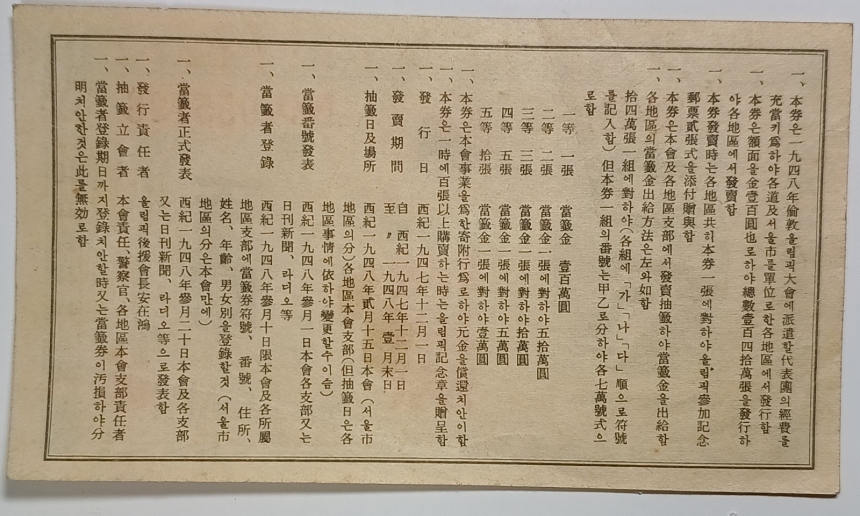 一、本券은一九四八年倫敦올림픽大會에派遣할代表團의經費를
充當키爲하야各道及서울市를單位로한各地區에서發行함
一、本券은額面을金壹百圓也로하야總數壹百四拾萬張을發行하
야各地區에서發賣함
一、本券發賣時는各地區共히本券一張에對하야올림픽參加記念
郵票貳張式을添付贈與함
一、本券은本會及各地區支部에서發賣抽籤하야當籤金을出給함
一、各地區의當籤金出給方法은左와如함
拾四萬張一組에對하야(各組에「가」「나」「다」順으로符號
를記入함)但本券一組의番號는甲乙로分하야各七萬號式으
로함
一等 一張 當籤金 壹百萬圓
二等 二張 當籤金一張에對하야五拾萬圓
三等 三張 當籤金一張에對하야拾萬圓
四等 五張 當籤金一張에對하야五萬圓
五等 拾張 當籤金一張에對하야壹萬圓
一、本券은本會事業을爲한寄附行爲로하야元金을償還치안이함
一、本券은一時에百張以上購買하는時는올림픽記念章을贈呈함
一、發行日 西紀一九四七年十二月一日
一、發賣期間 自 西紀一九四七年十二月一日
至 〃 一九四八年 壹月末日
一、抽籤日及場所 西紀一九四八年貳月十五日本會(서울市
地區의分)各地區本會支部(但抽籤日은各
地區事情에依하야變更할수이슴)
一、當籤番號發表 西紀一九四八年參月一日本會各支部又는
日刊新聞、라디오等
一、當籤者登錄 西紀一九四八年參月十日限本會及各所屬
地區支部에當籤券符號、番號、住所、
姓名、年齡、男女別을登錄할것(서울市
地區의分은本會만에)
一、當籤者正式發表 西紀一九四八年參月二十日本會及各支部
又는日刊新聞、라디오等으로發表함
一、發行責任者 올림픽後援會長安在鴻
一、抽籤立會者 本會責任、警察官、各地區本會支部責任者
一、當籤者登錄期日까지登錄치안할時又는當籤券이汚損하야分
明치안한것은此를無効로함